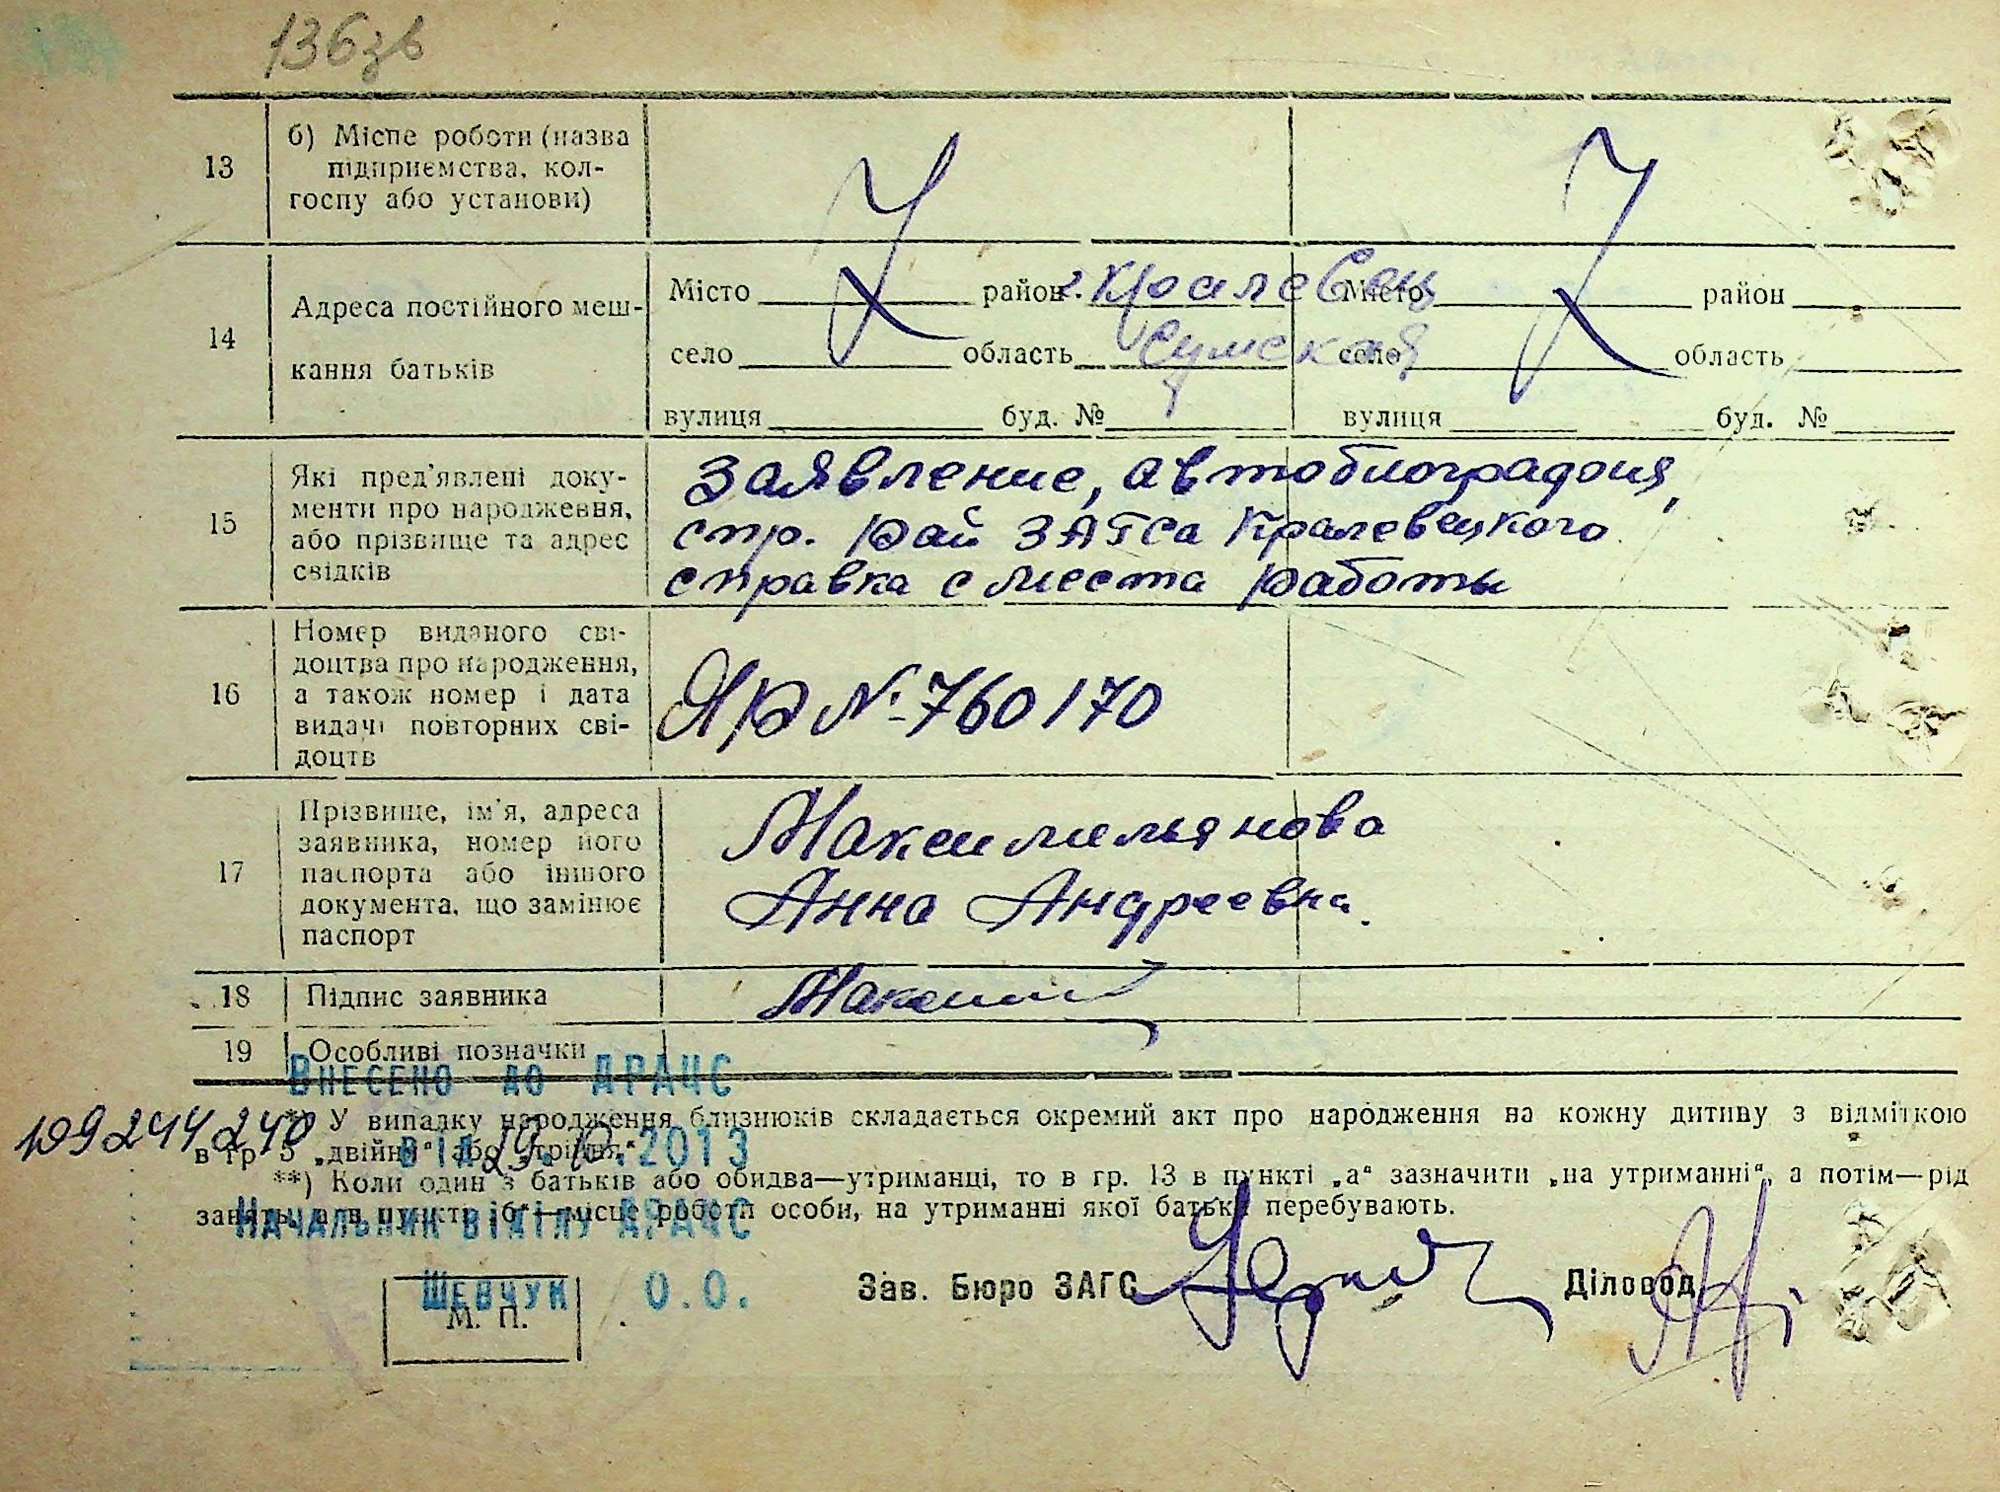 136зв
13
б) Місце роботи (назва
підприємства, кол-
госпу або установи)
14
Адреса постійного меш-
кання батьків
Місто район г. Кролевец
село область Сумская
вулиця буд. №
Місто район
село область
вулиця буд. №
15
Які пред'явлені доку-
менти про народження,
або прізвище та адрес
свідків
Заявление, автобиография,
спр. Рай ЗАГСа Кролевецкого
справка с места работы
16
Номер виданого сві-
доцтва про народження,
а також номер і дата
видачі повторних сві-
доцтв
ЯР № 760170
17
Прізвище, ім'я, адреса
заявника, номер його
паспорта або іншого
документа, що замінює
паспорт
Максимильянова
Анна Андреевна.
18
Підпис заявника
19
Особливі позначки
Внесено до ДРАЧС
*) У випадку народження близнюків складається окремий акт про народження на кожну дитину з відміткою
109244240
в гр 5 „двійня“ або „трійня“
від 29.10.2013
**) Коли один з батьків або обидва—утриманці, то в гр. 13 в пункті „а“ зазначити „на утриманні“, а потім—рід
занять, а в пункті „б“—місце роботи особи, на утриманні якої батьки перебувають.
Начальник відділу ДРАЧС
Шевчук О.О.
М. П.
Зав. Бюро ЗАГС
Діловод